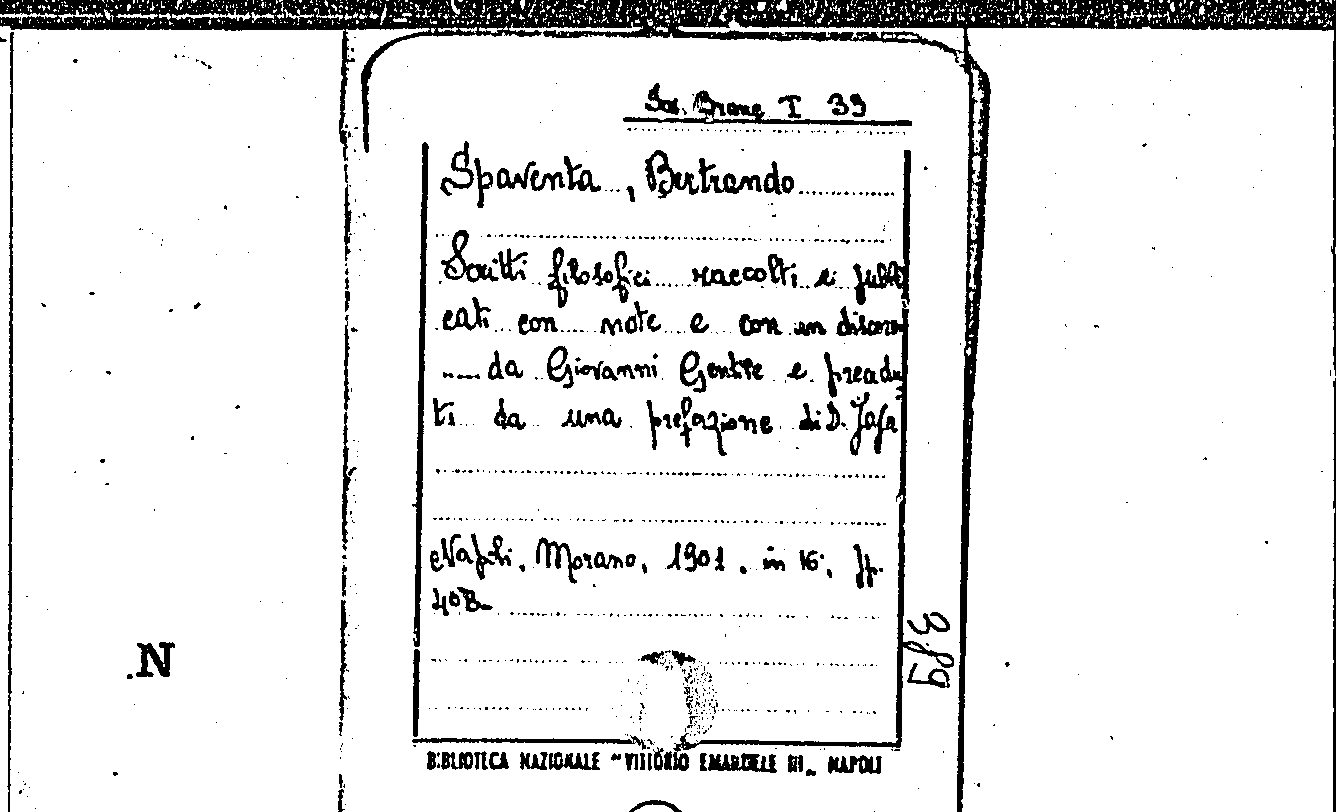 Sal. Brang I 39
Spaventa, Bertrando
Scritti filosofici raccolti e pubbli
cati con note e con un discorso
da Giovanni Gentile e preadu
ti da una prefazione di D. Jaja
Napoli, Morano, 1901, in 16°, pp.
408-
389
.N
BIBLIOTECA NAZIONALE "VITTORIO EMANUELE III" NAPOLI